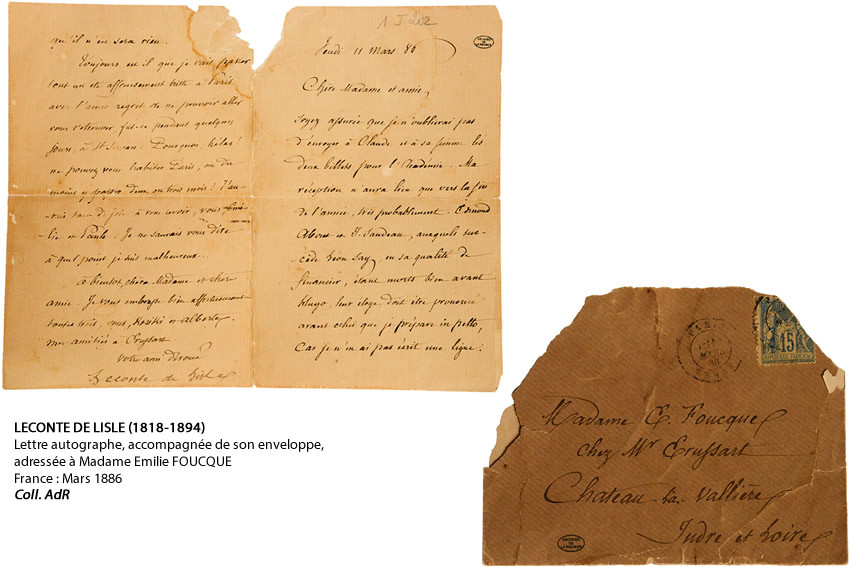 1 J 202
Jeudi 11 Mars 86
Chère Madame et amie,
Soyez assurée que je n'oublierai pas
d'envoyer à Claude et à sa femme les
deux billets pour l'Académie. Ma
réception n'aura lieu que vers la fin
de l'année, très probablement. Edmond
About et J. Sandeau, auxquels suc-
cède Léon Say, en sa qualité de
financier, étant morts bien avant
Hugo, leur éloge doit être prononcé
avant celui que je prépare in petto,
Car je n'en ai pas écrit une ligne.
qu'il n'en sera rien.
Toujours est il que je vais passer
tout un été affreusement triste à Paris
avec l'amer regret de ne pouvoir aller
vous retrouver fut-ce pendant quelques
jours, à St Servan. Pourquoi, hélas!
ne pouvez vous habiter Paris, ou du
moins y passer deux ou trois mois! J'au-
rais tant de joie à vous avoir, vous
Je ne saurais vous dire
à quel point je suis malheureux.
à bientôt, chère Madame et chère
amie. Je vous embrasse bien affectueusement
toutes trois, vous, et
mes amitiés à Crussard
Votre ami dévoué
Leconte de Lisle
15
Madame E. Foucque
chez Mr Crussard
Chateau-la-Vallière
Indre et Loire
LECONTE DE LISLE (1818-1894)
Lettre autographe, accompagnée de son enveloppe,
adressée à Madame Emilie FOUCQUE
France : Mars 1886
Coll. AdR